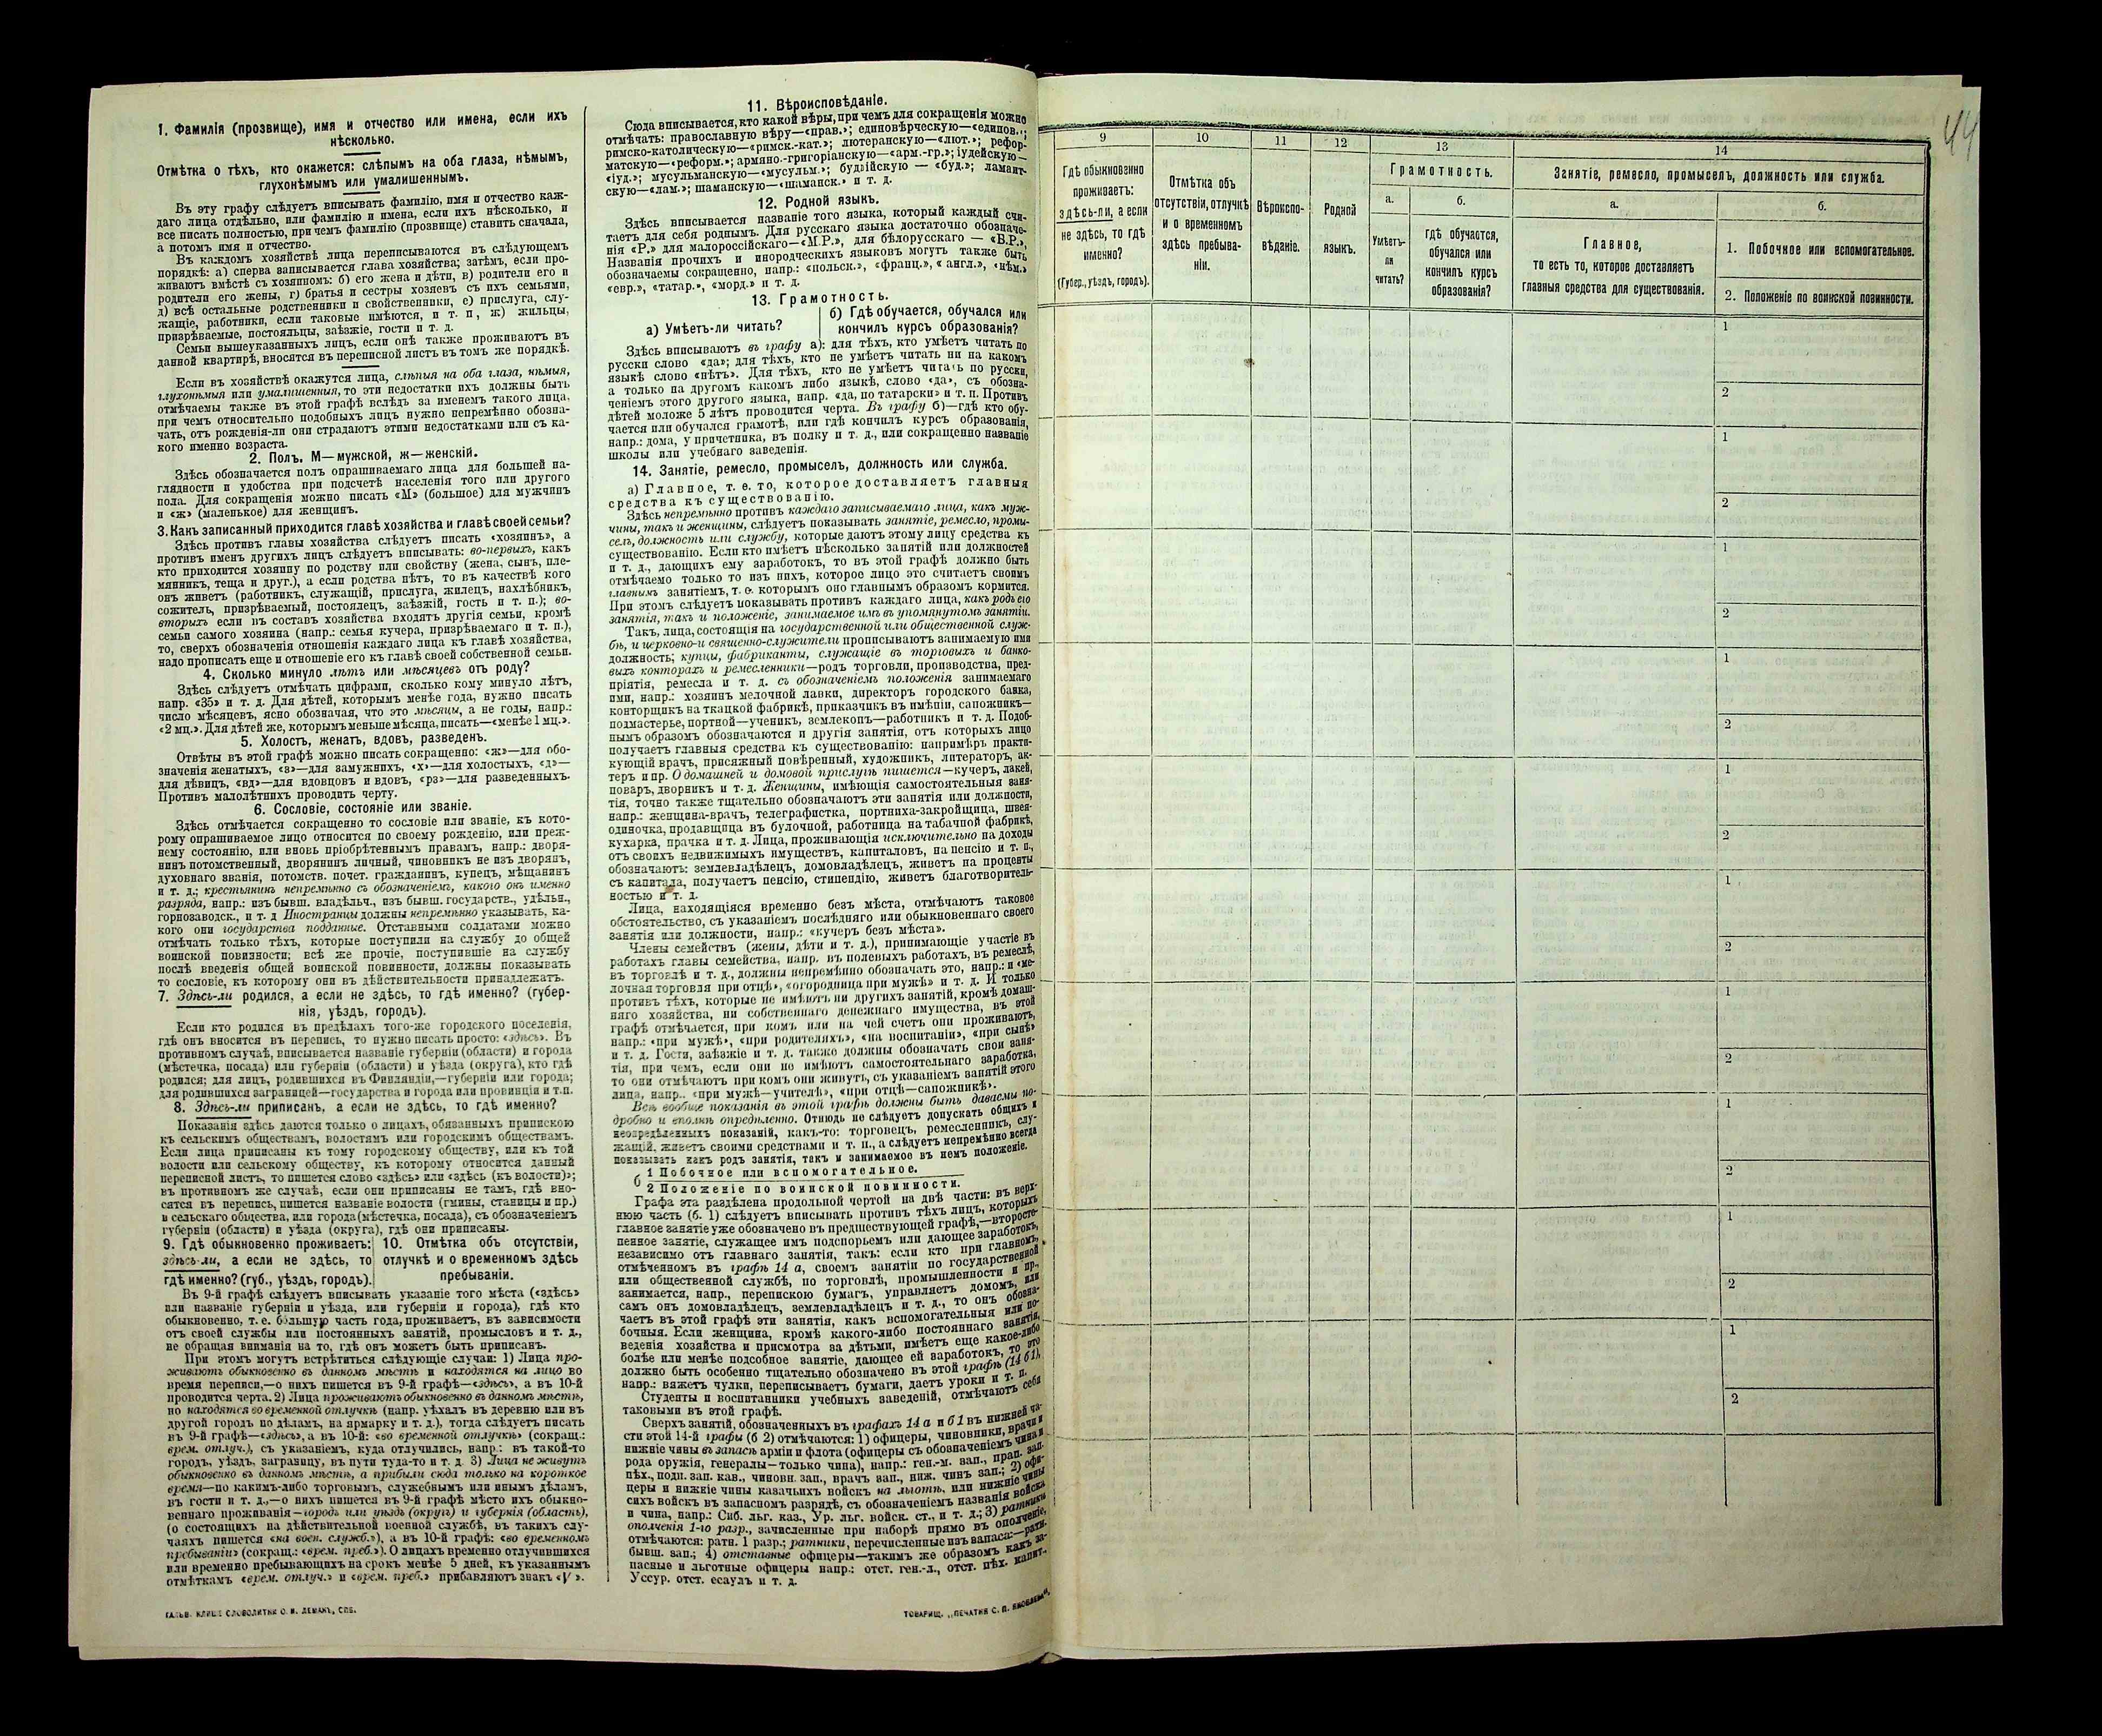 1. Фамилія (прозвище), имя и отчество или имена, если ихъ
нѣсколько.
Отмѣтка о тѣхъ, кто окажется: слѣпымъ на оба глаза, нѣмымъ,
глухонѣмымъ или умалишеннымъ.
Въ эту графу слѣдуетъ вписывать фамилію, имя и отчество каж-
даго лица отдѣльно, или фамилію и имена, если ихъ нѣсколько, и
все писать полностью, при чемъ фамилію (прозвище) ставить сначала,
а потомъ имя и отчество.
Въ каждомъ хозяйствѣ лица переписываются въ слѣдующемъ
порядкѣ: а) сперва записывается глава хозяйства; затѣмъ, если про-
живаютъ вмѣстѣ съ хозяиномъ: б) его жена и дѣти, в) родители его и
родители его жены, г) братья и сестры хозяевъ съ ихъ семьями,
д) всѣ остальные родственники и свойственники, е) прислуга, слу-
жащіе, работники, если таковые имѣются, и т. п, ж) жильцы,
призрѣваемые, постояльцы, заѣзжіе, гости и т. д.
Семьи вышеуказанныхъ лицъ, если онѣ также проживаютъ въ
данной квартирѣ, вносятся въ переписной листъ въ томъ же порядкѣ.
Если въ хозяйствѣ окажутся лица, слѣпыя на оба глаза, нѣмыя,
глухонѣмыя или умалишенныя, то эти недостатки ихъ должны быть
отмѣчаемы также въ этой графѣ вслѣдъ за именемъ такого лица,
при чемъ относительно подобныхъ лицъ нужно непремѣнно обозна-
чать, отъ рожденія-ли они страдаютъ этими недостатками или съ ка-
кого именно возраста.
2. Полъ. М—мужской, ж—женскій.
Здѣсь обозначается полъ опрашиваемаго лица для большей на-
глядности и удобства при подсчетѣ населенія того или другого
пола. Для сокращенія можно писать «М» (большое) для мужчинъ
и «ж» (маленькое) для женщинъ.
3. Какъ записанный приходится главѣ хозяйства и главѣ своей семьи?
Здѣсь противъ главы хозяйства слѣдуетъ писать «хозяинъ», а
противъ именъ другихъ лицъ слѣдуетъ вписывать: во-первыхъ, какъ
кто приходится хозяину по родству или свойству (жена, сынъ, пле-
мянникъ, теща и друг.), а если родства нѣтъ, то въ качествѣ кого
онъ живетъ (работникъ, служащій, прислуга, жилецъ, нахлѣбникъ,
сожитель, призрѣваемый, постоялецъ, заѣзжій, гость и т. п.); во-
вторыхъ если въ составъ хозяйства входятъ другія семьи, кромѣ
семьи самого хозяина (напр.: семья кучера, призрѣваемаго и т. п.),
то, сверхъ обозначенія отношенія каждаго лица къ главѣ хозяйства,
надо прописать еще и отношеніе его къ главѣ своей собственной семьи.
4. Сколько минуло лѣтъ или мѣсяцевъ отъ роду?
Здѣсь слѣдуетъ отмѣчать цифрами, сколько кому минуло лѣтъ,
напр. «35» и т. д. Для дѣтей, которымъ менѣе года, нужно писать
число мѣсяцевъ, ясно обозначая, что это мѣсяцы, а не годы, напр.:
«2 мц.». Для дѣтей же, которымъ меньше мѣсяца, писать—«менѣе 1 мц.».
5. Холостъ, женатъ, вдовъ, разведенъ.
Отвѣты въ этой графѣ можно писать сокращенно: «ж»—для обо-
значенія женатыхъ, «з»—для замужнихъ, «х»—для холостыхъ, «д»—
для дѣвицъ, «вд»—для вдовцовъ и вдовъ, «рз»—для разведенныхъ.
Противъ малолѣтнихъ проводить черту.
6. Сословіе, состояніе или званіе.
Здѣсь отмѣчается сокращенно то сословіе или званіе, къ кото-
рому опрашиваемое лицо относится по своему рожденію, или преж-
нему состоянію, или вновь пріобрѣтеннымъ правамъ, напр.: дворя-
нинъ потомственный, дворянинъ личный, чиновникъ не изъ дворянъ,
духовнаго званія, потомств. почет. гражданинъ, купецъ, мѣщанинъ
и т. д.; крестьянинъ непремѣнно съ обозначеніемъ, какого онъ именно
разряда, напр.: изъ бывш. владѣльч., изъ бывш. государств., удѣльн.,
горнозаводск., и т. д Иностранцы должны непремѣнно указывать, ка-
кого они государства подданные. Отставными солдатами можно
отмѣчать только тѣхъ, которые поступили на службу до общей
воинской повинности; всѣ же прочіе, поступившіе на службу
послѣ введенія общей воинской повинности, должны показывать
то сословіе, къ которому они въ дѣйствительности принадлежатъ.
7. Здѣсь-ли родился, а если не здѣсь, то гдѣ именно? (губер-
нія, уѣздъ, городъ).
Если кто родился въ предѣлахъ того-же городского поселенія,
гдѣ онъ вносится въ перепись, то нужно писать просто: «здѣсь». Въ
противномъ случаѣ, вписывается названіе губерніи (области) и города
(мѣстечка, посада) или губерніи (области) и уѣзда (округа), кто гдѣ
родился; для лицъ, родившихся въ Финляндіи,—губерніи или города;
для родившихся заграницей—государства и города или провинціи и т.п.
8. Здѣсь-ли приписанъ, а если не здѣсь, то гдѣ именно?
Показанія здѣсь даются только о лицахъ, обязанныхъ припискою
къ сельскимъ обществамъ, волостямъ или городскимъ обществамъ.
Если лица приписаны къ тому городскому обществу, или къ той
волости или сельскому обществу, къ которому относится данный
переписной листъ, то пишется слово «здѣсь» или «здѣсь (къ волости)»;
въ противномъ же случаѣ, если они приписаны не тамъ, гдѣ вно-
сятся въ перепись, пишется названіе волости (гмины, станицы и пр.)
и сельскаго общества, или города (мѣстечка, посада), съ обозначеніемъ
губерніи (области) и уѣзда (округа), гдѣ они приписаны.
9. Гдѣ обыкновенно проживаетъ:
здѣсь-ли, а если не здѣсь, то
гдѣ именно? (губ., уѣздъ, городъ).
10. Отмѣтка объ отсутствіи,
отлучкѣ и о временномъ здѣсь
пребываніи.
Въ 9-й графѣ слѣдуетъ вписывать указаніе того мѣста («здѣсь»
или названіе губерніи и уѣзда, или губерніи и города), гдѣ кто
обыкновенно, т. е. бо́льшую часть года, проживаетъ, въ зависимости
отъ своей службы или постоянныхъ занятій, промысловъ и т. д.,
не обращая вниманія на то, гдѣ онъ можетъ быть приписанъ.
При этомъ могутъ встрѣтиться слѣдующіе случаи: 1) Лица про-
живаютъ обыкновенно въ данномъ мѣстѣ и находятся на лицо во
время переписи,—о нихъ пишется въ 9-й графѣ—«здѣсь», а въ 10-й
проводится черта. 2) Лица проживаютъ обыкновенно въ данномъ мѣстѣ,
но находятся во временной отлучкѣ (напр. уѣхалъ въ деревню или въ
другой городъ по дѣламъ, на ярмарку и т. д.), тогда слѣдуетъ писать
въ 9-й графѣ—«здѣсь», а въ 10-й: «во временной отлучкѣ» (сокращ.:
врем. отлуч.), съ указаніемъ, куда отлучились, напр.: въ такой-то
городъ, уѣздъ, заграницу, въ пути туда-то и т. д. 3) Лица не живутъ
обыкновенно въ данномъ мѣстѣ, а прибыли сюда только на короткое
время—по какимъ-либо торговымъ, служебнымъ или инымъ дѣламъ,
въ гости и т. д.,—о нихъ пишется въ 9-й графѣ мѣсто ихъ обыкно-
веннаго проживанія—городъ или уѣздъ (округъ) и губернія (область),
(о состоящихъ на дѣйствительной военной службѣ, въ такихъ слу-
чаяхъ пишется «на воен. служб.»), а въ 10-й графѣ: «во временномъ
пребываніи» (сокращ.: «врем. преб.»). О лицахъ временно отлучившихся
или временно пребывающихъ на срокъ менѣе 5 дней, къ указаннымъ
отмѣткамъ «врем. отлуч.» и «врем. преб.» прибавляютъ знакъ «V».
ГАЛЬВ. КЛИШЕ СЛОВОЛИТНИ О. И. ЛЕМАНЪ, СПБ.
11. Вѣроисповѣданіе.
Сюда вписывается, кто какой вѣры, при чемъ для сокращенія можно
отмѣчать: православную вѣру—«прав.»; единовѣрческую—«единов.»;
римско-католическую—«римск.-кат.»; лютеранскую—«лют.»; рефор-
матскую—«реформ.»; армяно.-григоріанскую—«арм.-гр.»; іудейскую—
«іуд.»; мусульманскую—«мусульм.»; буддійскую — «буд.»; ламаит-
скую—«лам.»; шаманскую—«шаманск.» и т. д.
12. Родной языкъ.
Здѣсь вписывается названіе того языка, который каждый счи-
таетъ для себя роднымъ. Для русскаго языка достаточно обозначе-
нія «Р.» для малороссійскаго—«М.Р.», для бѣлорусскаго — «Б.Р.»,
Названія прочихъ и инородческихъ языковъ могутъ также быть
обозначаемы сокращенно, напр.: «польск.», «франц.», « англ.», «нѣм.»
«евр.», «татар.», «морд.» и т. д.
13. Грамотность.
а) Умѣетъ-ли читать?
б) Гдѣ обучается, обучался или
кончилъ курсъ образованія?
Здѣсь вписываютъ въ графу а): для тѣхъ, кто умѣетъ читать по
русски слово «да»; для тѣхъ, кто не умѣетъ читать ни на какомъ
языкѣ слово «нѣтъ». Для тѣхъ, кто не умѣетъ читать по русски,
а только на другомъ какомъ либо языкѣ, слово «да», съ обозна-
ченіемъ этого другого языка, напр. «да, по татарски» и т. п. Противъ
дѣтей моложе 5 лѣтъ проводится черта. Въ графу б)—гдѣ кто обу-
чается или обучался грамотѣ, или гдѣ кончилъ курсъ образованія,
напр.: дома, у причетника, въ полку и т. д., или сокращенно названіе
школы или учебнаго заведенія.
14. Занятіе, ремесло, промыселъ, должность или служба.
а) Главное, т. е. то, которое доставляетъ главныя
средства къ существованію.
Здѣсь непремѣнно противъ каждаго записываемаго лица, какъ муж-
чины, такъ и женщины, слѣдуетъ показывать занятіе, ремесло, промы-
селъ, должность или службу, которые даютъ этому лицу средства къ
существованію. Если кто имѣетъ нѣсколько занятій или должностей
и т. д., дающихъ ему заработокъ, то въ этой графѣ должно быть
отмѣчаемо только то изъ нихъ, которое лицо это считаетъ своимъ
главнымъ занятіемъ, т. е. которымъ оно главнымъ образомъ кормится.
При этомъ слѣдуетъ показывать противъ каждаго лица, какъ родъ его
занятія, такъ и положеніе, занимаемое имъ въ упомянутомъ занятіи.
Такъ, лица, состоящія на государственной или общественной служ-
бѣ, и церковно-и священно-служители прописываютъ занимаемую ими
должность; купцы, фабриканты, служащіе въ торговыхъ и банко-
выхъ конторахъ и ремесленники—родъ торговли, производства, пред-
пріятія, ремесла и т. д. съ обозначеніемъ положенія занимаемаго
ими, напр.: хозяинъ мелочной лавки, директоръ городского банка,
конторщикъ на ткацкой фабрикѣ, приказчикъ въ имѣніи, сапожникъ—
подмастерье, портной—ученикъ, землекопъ—работникъ и т. д. Подоб-
нымъ образомъ обозначаются и другія занятія, отъ которыхъ лицо
получаетъ главныя средства къ существованію: напримѣръ практи-
кующій врачъ, присяжный повѣренный, художникъ, литераторъ, ак-
теръ и пр. О домашней и домовой прислугѣ пишется—кучеръ, лакей,
поваръ, дворникъ и т. д. Женщины, имѣющія самостоятельныя заня-
тія, точно также тщательно обозначаютъ эти занятія или должности,
напр.: женщина-врачъ, телеграфистка, портниха-закройщица, швея-
одиночка, продавщица въ булочной, работница на табачной фабрикѣ,
кухарка, прачка и т. д. Лица, проживающія исключительно на доходы
отъ своихъ недвижимыхъ имуществъ, капиталовъ, на пенсію и т. п.,
обозначаютъ: землевладѣлецъ, домовладѣлецъ, живетъ на проценты
съ капитала, получаетъ пенсію, стипендію, живетъ благотворитель-
ностью и т. д.
Лица, находящіяся временно безъ мѣста, отмѣчаютъ таковое
обстоятельство, съ указаніемъ послѣдняго или обыкновеннаго своего
занятія или должности, напр.: «кучеръ безъ мѣста».
Члены семействъ (жены, дѣти и т. д.), принимающіе участіе въ
работахъ главы семейства, напр. въ полевыхъ работахъ, въ ремеслѣ,
въ торговлѣ и т. д., должны непремѣнно обозначать это, напр.: и «ме-
лочная торговля при отцѣ», «огородница при мужѣ» и т. д. И только
противъ тѣхъ, которые не имѣютъ ни другихъ занятій, кромѣ домаш-
няго хозяйства, ни собственнаго денежнаго имущества, въ этой
графѣ отмѣчается, при комъ или на чей счетъ они проживаютъ,
напр.: «при мужѣ», «при родителяхъ», «на воспитаніи», «при сынѣ»
и т. д. Гости, заѣзжіе и т. д. также должны обозначать свои заня-
тія, при чемъ, если они не имѣютъ самостоятельнаго заработка,
то они отмѣчаютъ при комъ они живутъ, съ указаніемъ занятій этого
лица, напр.. «при мужѣ—учителѣ», «при отцѣ—сапожникѣ».
Всѣ вообще показанія въ этой графѣ должны быть даваемы по-
дробно и вполнѣ опредѣленно. Отнюдь не слѣдуетъ допускать общихъ и
неопредѣленныхъ показаній, какъ-то: торговецъ, ремесленникъ, слу-
жащій, живетъ своими средствами и т. п., а слѣдуетъ непремѣнно всегда
показывать какъ родъ занятія, такъ и занимаемое въ немъ положеніе.
1 Побочное или вспомогательное.
б
2 Положеніе по воинской повинности.
Графа эта раздѣлена продольной чертой на двѣ части: въ верх-
нюю часть (б. 1) слѣдуетъ вписывать противъ тѣхъ лицъ, которыхъ
главное занятіе уже обозначено въ предшествующей графѣ,—второсте-
пенное занятіе, служащее имъ подспорьемъ или дающее заработокъ,
независимо отъ главнаго занятія, такъ: если кто при главномъ,
отмѣченномъ въ графѣ 14 а, своемъ занятіи по государственной
или общественной службѣ, по торговлѣ, промышленности и пр.,
занимается, напр., перепискою бумагъ, управляетъ домомъ, или
самъ онъ домовладѣлецъ, землевладѣлецъ и т. д., то онъ обозна-
чаетъ въ этой графѣ эти занятія, какъ вспомогательныя или по-
бочныя. Если женщина, кромѣ какого-либо постояннаго занятія,
веденія хозяйства и присмотра за дѣтьми, имѣетъ еще какое-либо
болѣе или менѣе подсобное занятіе, дающее ей заработокъ, то это
должно быть особенно тщательно обозначено въ этой графѣ (14 б 1),
напр.: вяжетъ чулки, переписываетъ бумаги, даетъ уроки и т. п.
Студенты и воспитанники учебныхъ заведеній, отмѣчаютъ себя
таковыми въ этой графѣ.
Сверхъ занятій, обозначенныхъ въ графахъ 14 а и б 1 въ нижней ча-
сти этой 14-й графы (б 2) отмѣчаются: 1) офицеры, чиновники, врачи и
нижніе чины въ запасѣ арміи и флота (офицеры съ обозначеніемъ чина и
рода оружія, генералы—только чина), напр.: ген.-м. зап., прап. зап.
пѣх., подп. зап. кав., чиновн. зап., врачъ зап., ниж. чинъ зап.; 2) офи-
церы и нижніе чины казачьихъ войскъ на льготѣ, или нижніе чины
сихъ войскъ въ запасномъ разрядѣ, съ обозначеніемъ названія войска
и чина, напр.: Сиб. льг. каз., Ур. льг. войск. ст., и т. д.; 3) ратники
ополченія 1-го разр., зачисленные при наборѣ прямо въ ополченіе,
отмѣчаются: ратн. 1 разр.; ратники, перечисленные изъ запаса:—ратн.
бывш. зап.; 4) отставные офицеры—такимъ же образомъ какъ за-
пасные и льготные офицеры напр.: отст. ген.-л., отст. пѣх. капит.,
Уссур. отст. есаулъ и т. д.
ТОВАРИЩ. „ПЕЧАТНЯ С. П. ЯКОВЛЕВА“.
44
9
10
11
12
13
14
Гдѣ обыкновенно
проживаетъ:
здѣсь-ли, а если
не здѣсь, то гдѣ
именно?
(Губер., уѣздъ, городъ).
Отмѣтка объ
отсутствіи, отлучкѣ
и о временномъ
здѣсь пребыва-
ніи.
Вѣроиспо-
вѣданіе.
Родной
языкъ.
Грамотность.
а.
Умѣетъ-
ли
читать?
б.
гдѣ обучается,
обучался или
кончилъ курсъ
образованія?
Занятіе, ремесло, промыселъ, должность или служба.
а.
Главное,
то есть то, которое доставляетъ
главныя средства для существованія.
б.
1. Побочное или вспомогательное.
2. Положеніе по воинской повинности.
1
2
1
2
1
2
1
2
1
2
1
2
1
2
1
2
1
2
1
2